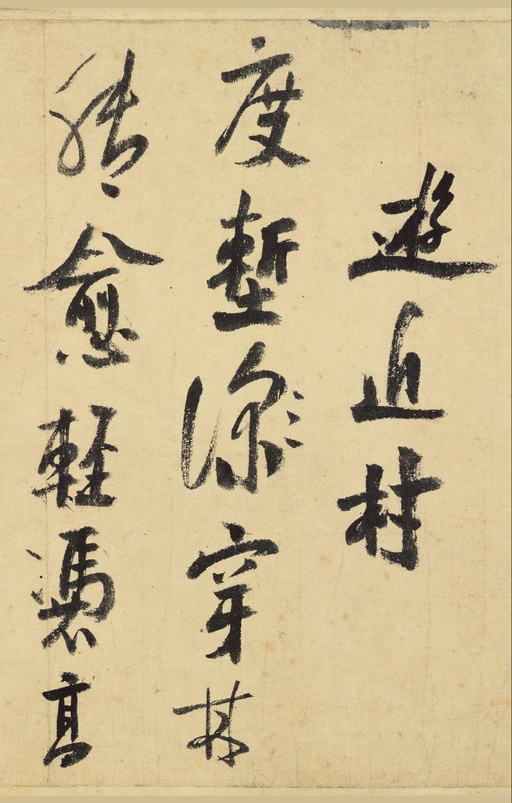 遊近村
度塹深穿林
脚愈輕憑高